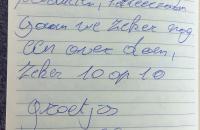 gaan we zeker nog
een over doen,
zeker 10 op 10
groetjes